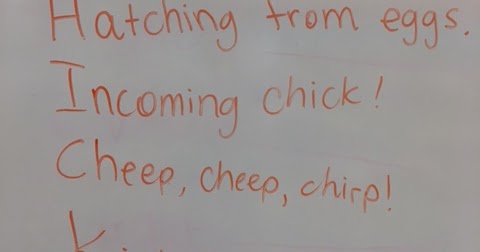 Hatching from eggs.
Incoming chick!
Cheep, cheep, chirp!